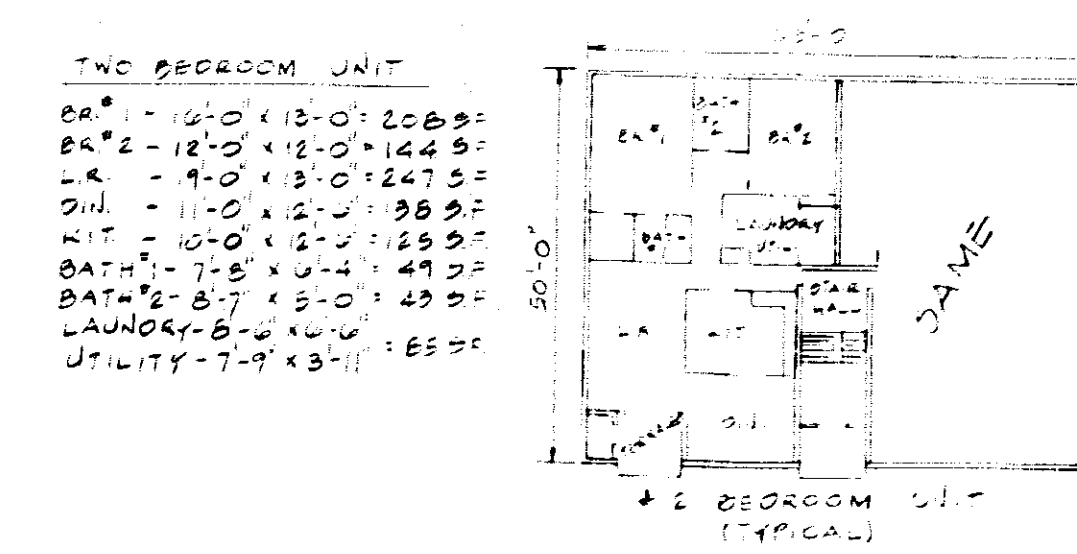 TWO BEDROOM UNIT
BR.#1 - 16'-0" x 13'-0" = 208 SF
BR.#2 - 12'-0" x 12'-0" = 144 SF
L.R. - 19'-0" x 13'-0" = 247 SF
DIN. - 11'-0" x 12'-6" = 138 S.F
KIT. - 10'-0" x 12'-6" = 125 SF
BATH #1 - 7'-8" x 6'-4" = 49 SF
BATH #2 - 8'-7" x 5'-0" = 43 SF
LAUNDRY - 8'-6" x 6'-6"
UTILITY - 7'-9" x 3'-11" : 85 SF
50'-0"
BR #1
BATH #2
BR #2
LAUNDRY
UTIL
BATH
L R
KIT
STAIR
HALL
DIN.
SAME
2 BEDROOM UNIT
(TYPICAL)